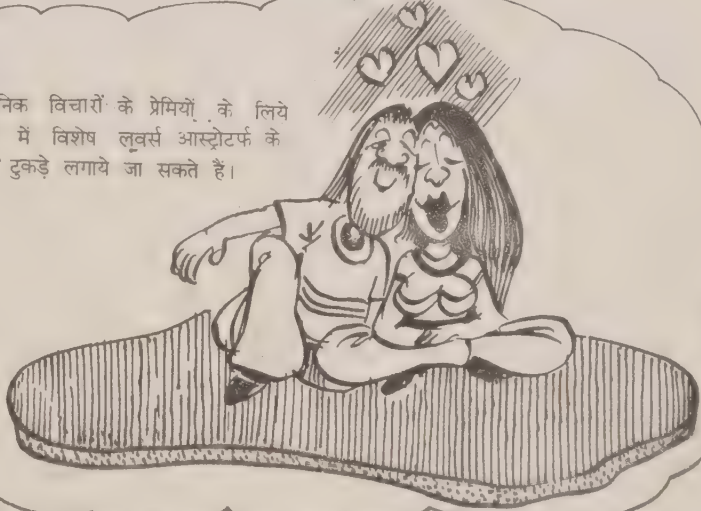 निक विचारों के प्रेमियों के लिये
में विशेष लवर्स आस्ट्रोटर्फ के
टुकड़े लगाये जा सकते हैं।